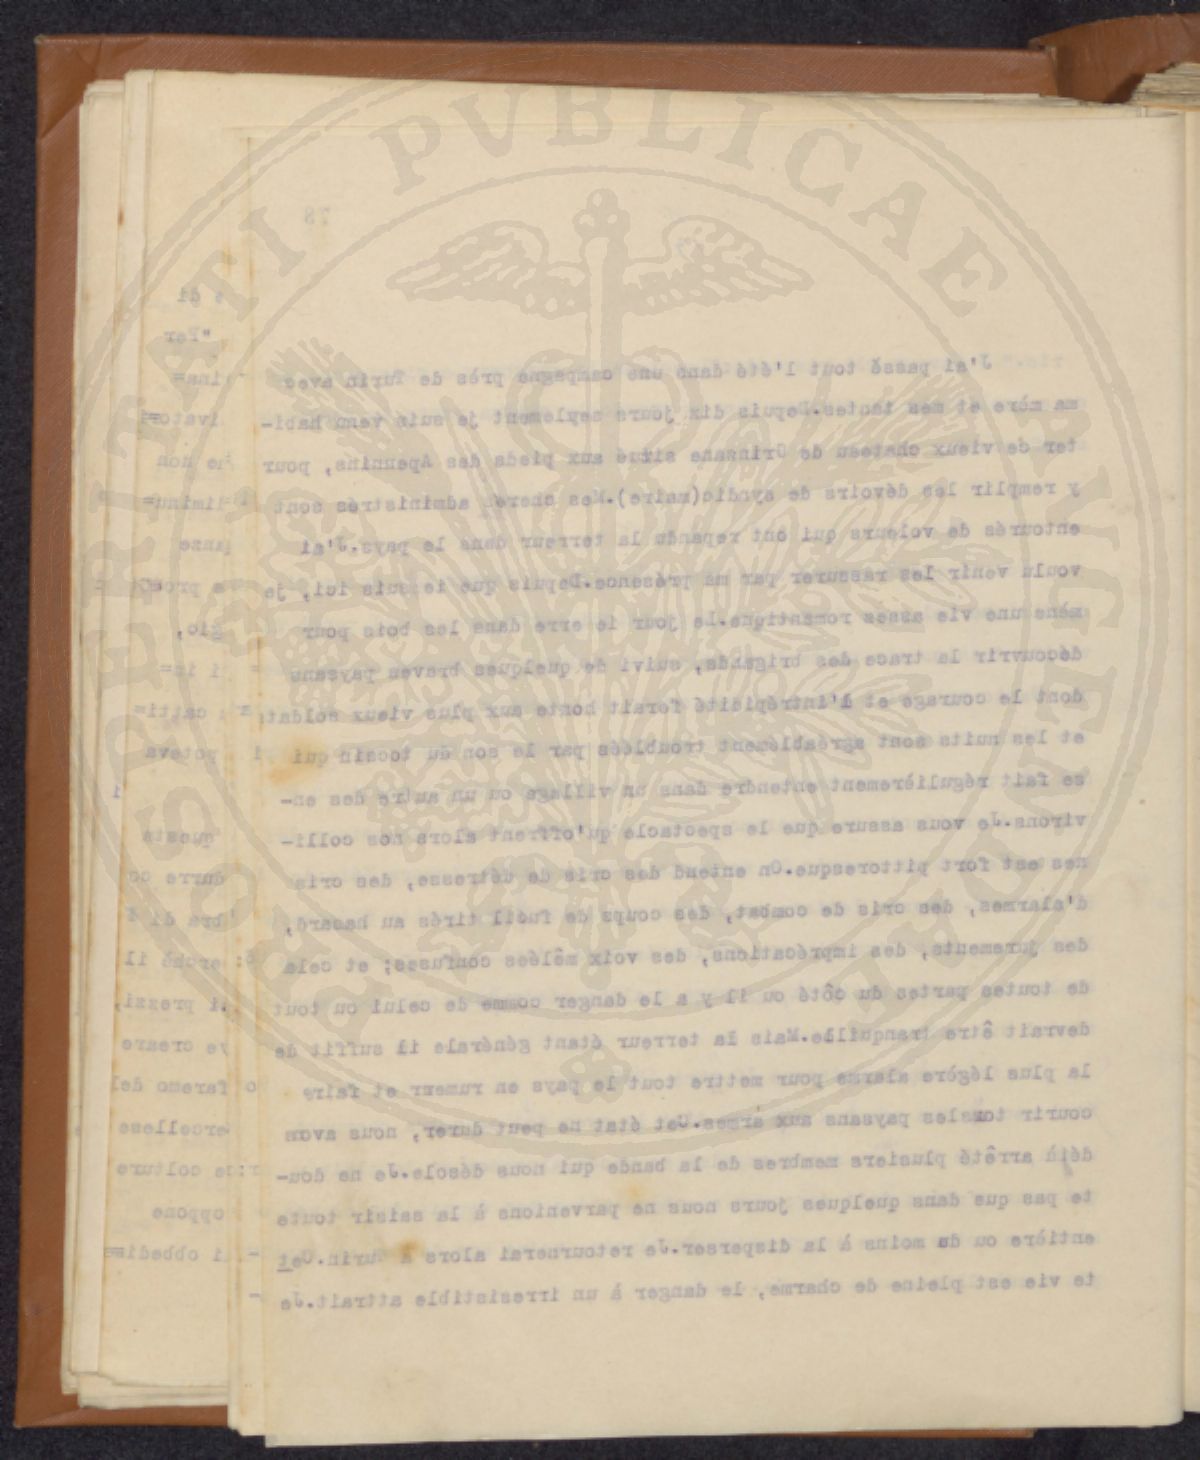 78
J'ai passé tout l'été dans une campagne près de Turin avec
ma mère et mes tantes.Depuis dix jours seulement je suis venu habi-
ter ce vieux chateau de Grinzane situé aux pieds des Apennins, pour
y remplir les dévoirs de syndic(maire).Mes cherés administrés sont
entourés de voleurs qui ont repandu la terreur dans le pays.J'ai
voulu venir les rassurer par ma présence.Depuis que je suis ici, je
mène une vie asses romantique.Le jour je erre dans les bois pour
découvrir la trace des brigands, suivi de quelques braves paysans
dont le courage et l'intrépidité ferait honte aux plus vieux soldat;
et les nuits sont agréablément troublées par le son du tocsin qui
se fait régulièrement entendre dans un village ou un autre des en-
virons.Je vous assure que le spectacle qu'offrent alors nos colli-
nes est fort pittoresque.On entend des cris de détresse, des cris
d'alarmes, des cris de combat, des coups de fusil tirés au hasard,
des jurements, des imprécations, des voix mêlées confuses; et cela
de toutes partes du côté ou il y a le danger comme de celui ou tout
devrait être tranquille.Mais la terreur étant générale il suffit de
la plus légère alarme pour mettre tout le pays en rumeur et faire
courir tous les paysans aux armes.Cet état ne peut durer, nous avons
déjà arrêté plusiers membres de la bande qui nous désole.Je ne dou-
te pas que dans quelques jours nous ne parvenions à la saisir toute
entière ou du moins à la disperser.Je retournerai alors à Turin.Cet
te vie est pleine de charme, le danger à un irresistible attrait.Je
s di
"Per
ina=
ivato=
non
diminu=
prog
gio,
catti=
poteva
questa
durre co
bra di
perchè il
i prezzi,
creare
faremo del
ercellese
colture
oppone
i obbedi=
PROSPERITATI PVBLICAE AVGENDAE